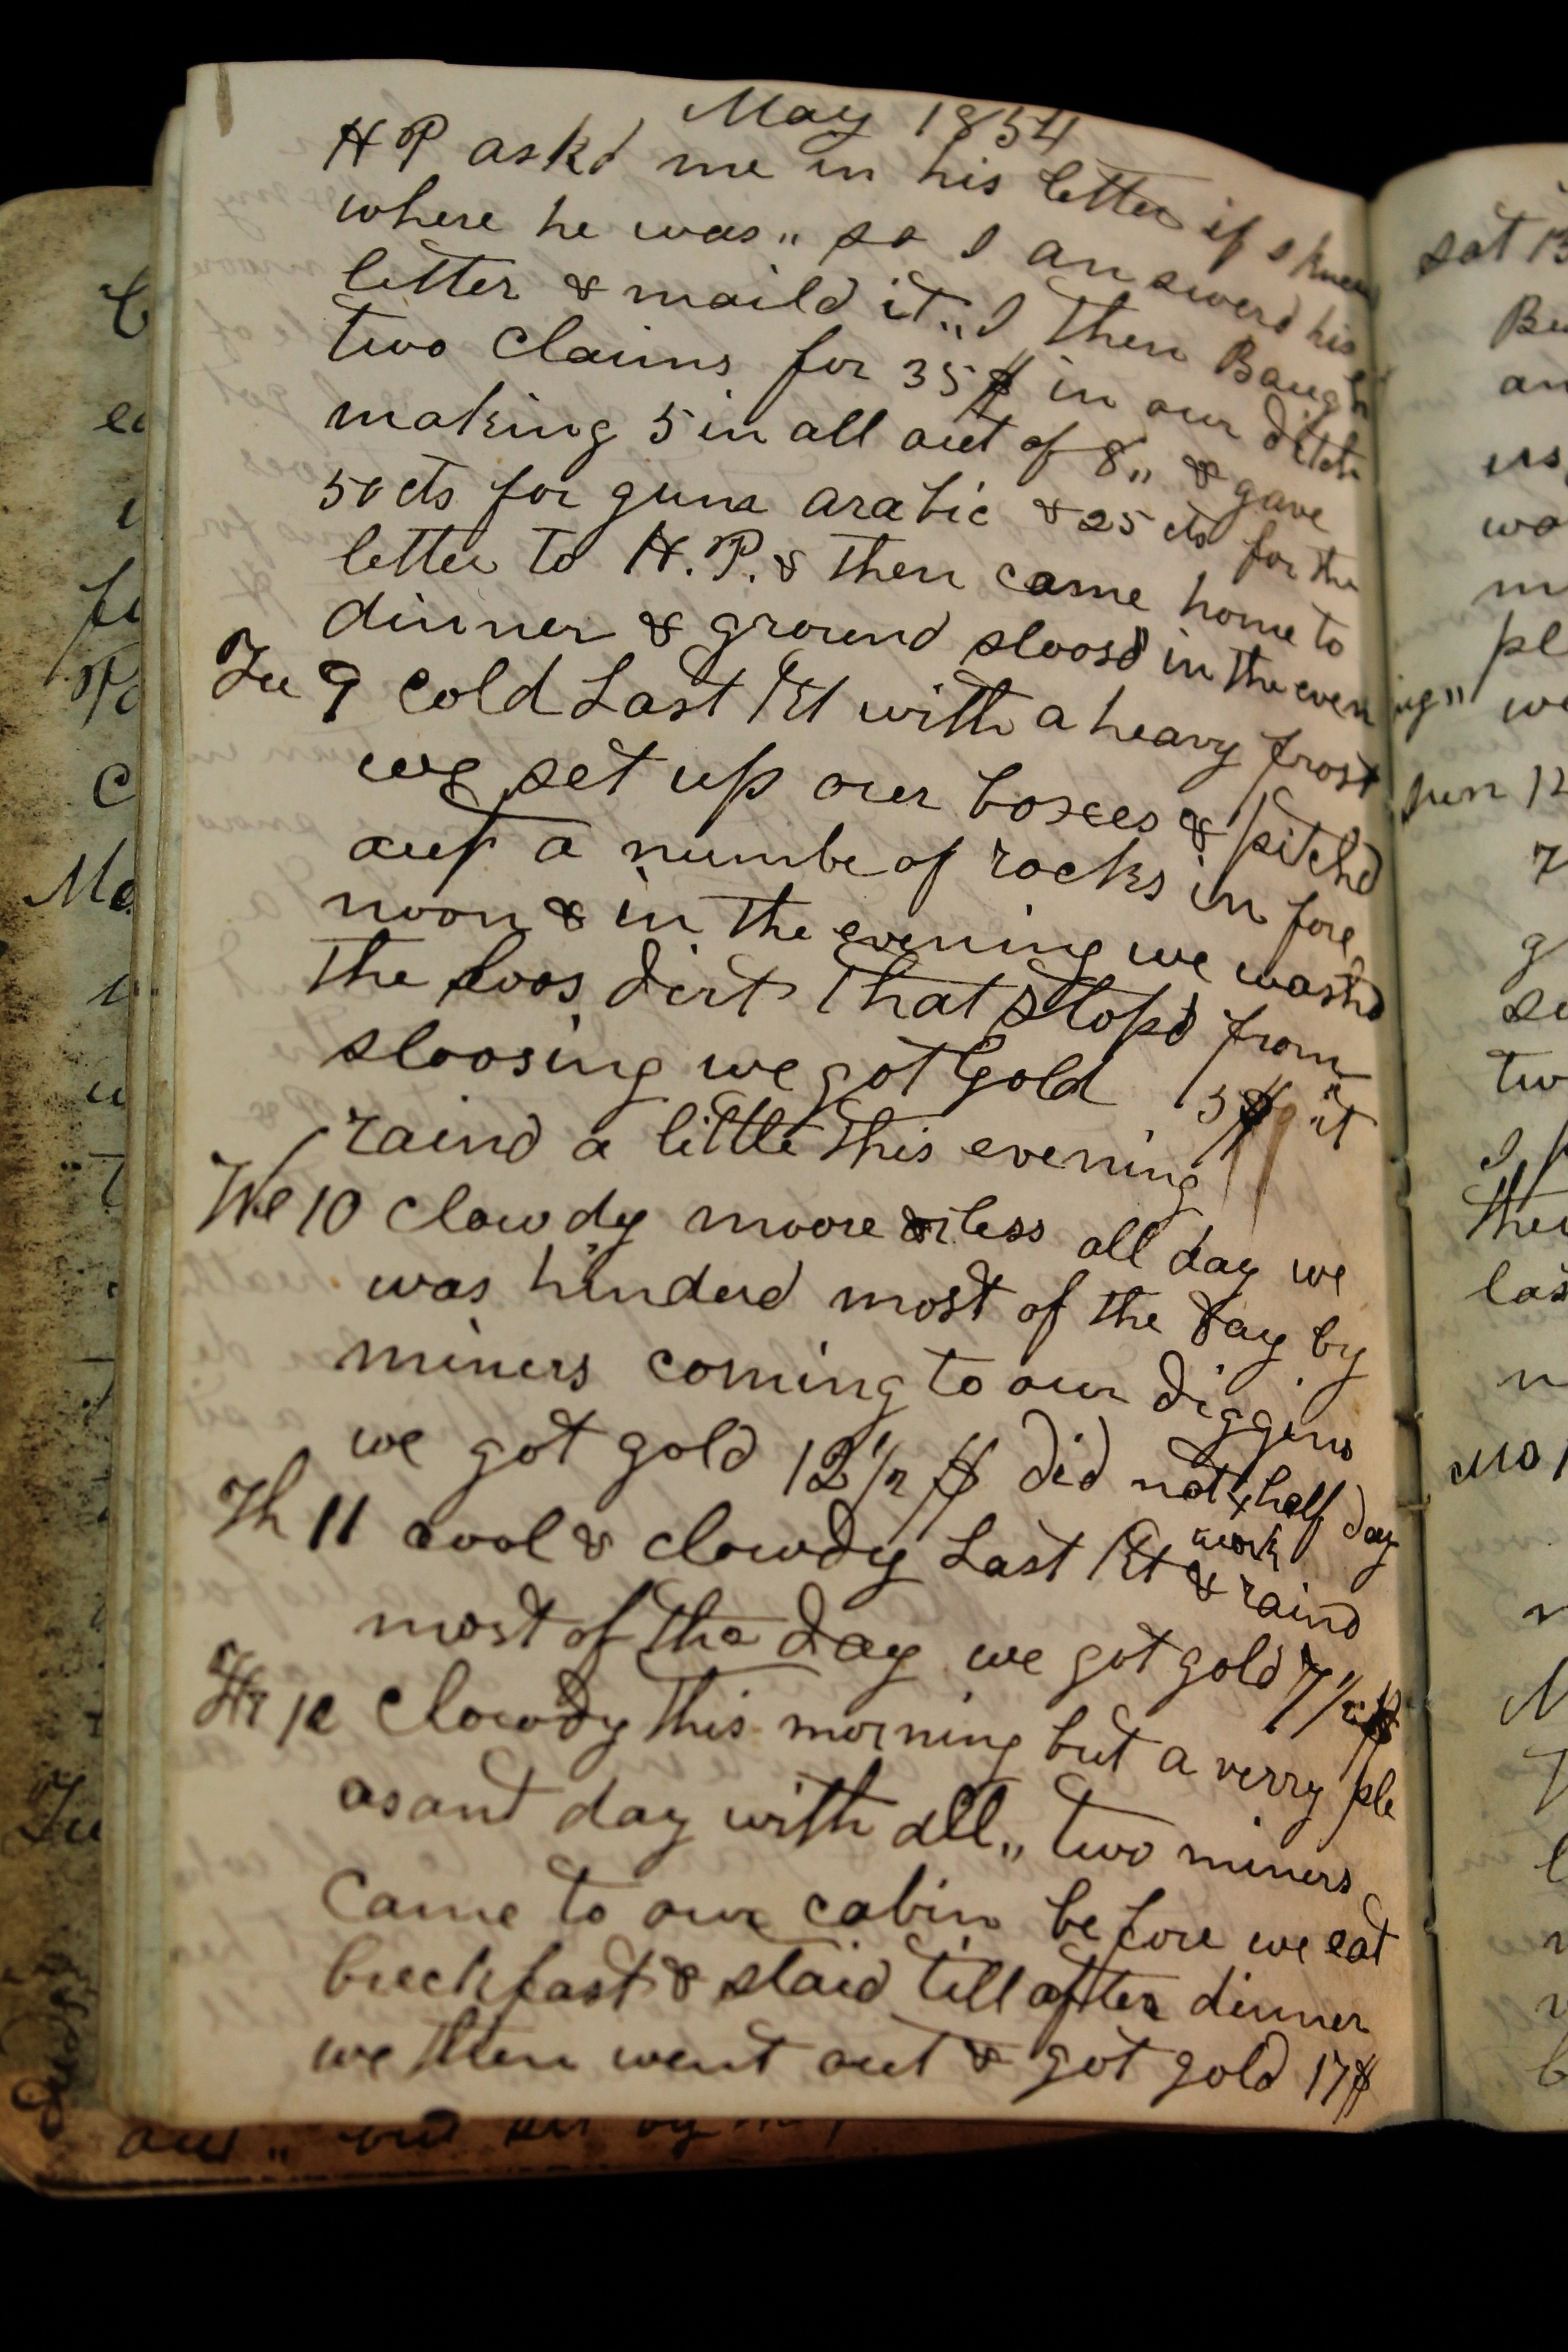 May 1854
H P askd me in his letter if I knew
where he was „ so I answerd his
letter & maild it „ I then Baught
two Claims for 35 $ in our ditch
making 5 in all out of 8 „ & gave
50 cts for gum arabic & 25 cts for the
letter to H. P. & then came home to
dinner & ground sloosd in the evening „
Tu 9 Cold Last Nt with a heavy frost
we set up our boxes & pitchd
out a numbe of rocks in fore
noon & in the evening we washd
the loos dirt that stopd from
sloosing we got Gold 5 $ it
raind a little this evening
We 10 clowdy moore or less all day we
was hinderd most of the day by
miners coming to our diggins
we got gold 12 1/2 $ did not half day
work
Th 11 cool & clowdy Last Nt & raind
most of the day we got gold 7 1/2 $
Fr 12 Clowdy this morning but a verry ple
asant day with all „ two miners
came to our cabin before we eat
breckfast & staid till after dinner
we then went out & got gold 17 $
sat 13
Sun 12